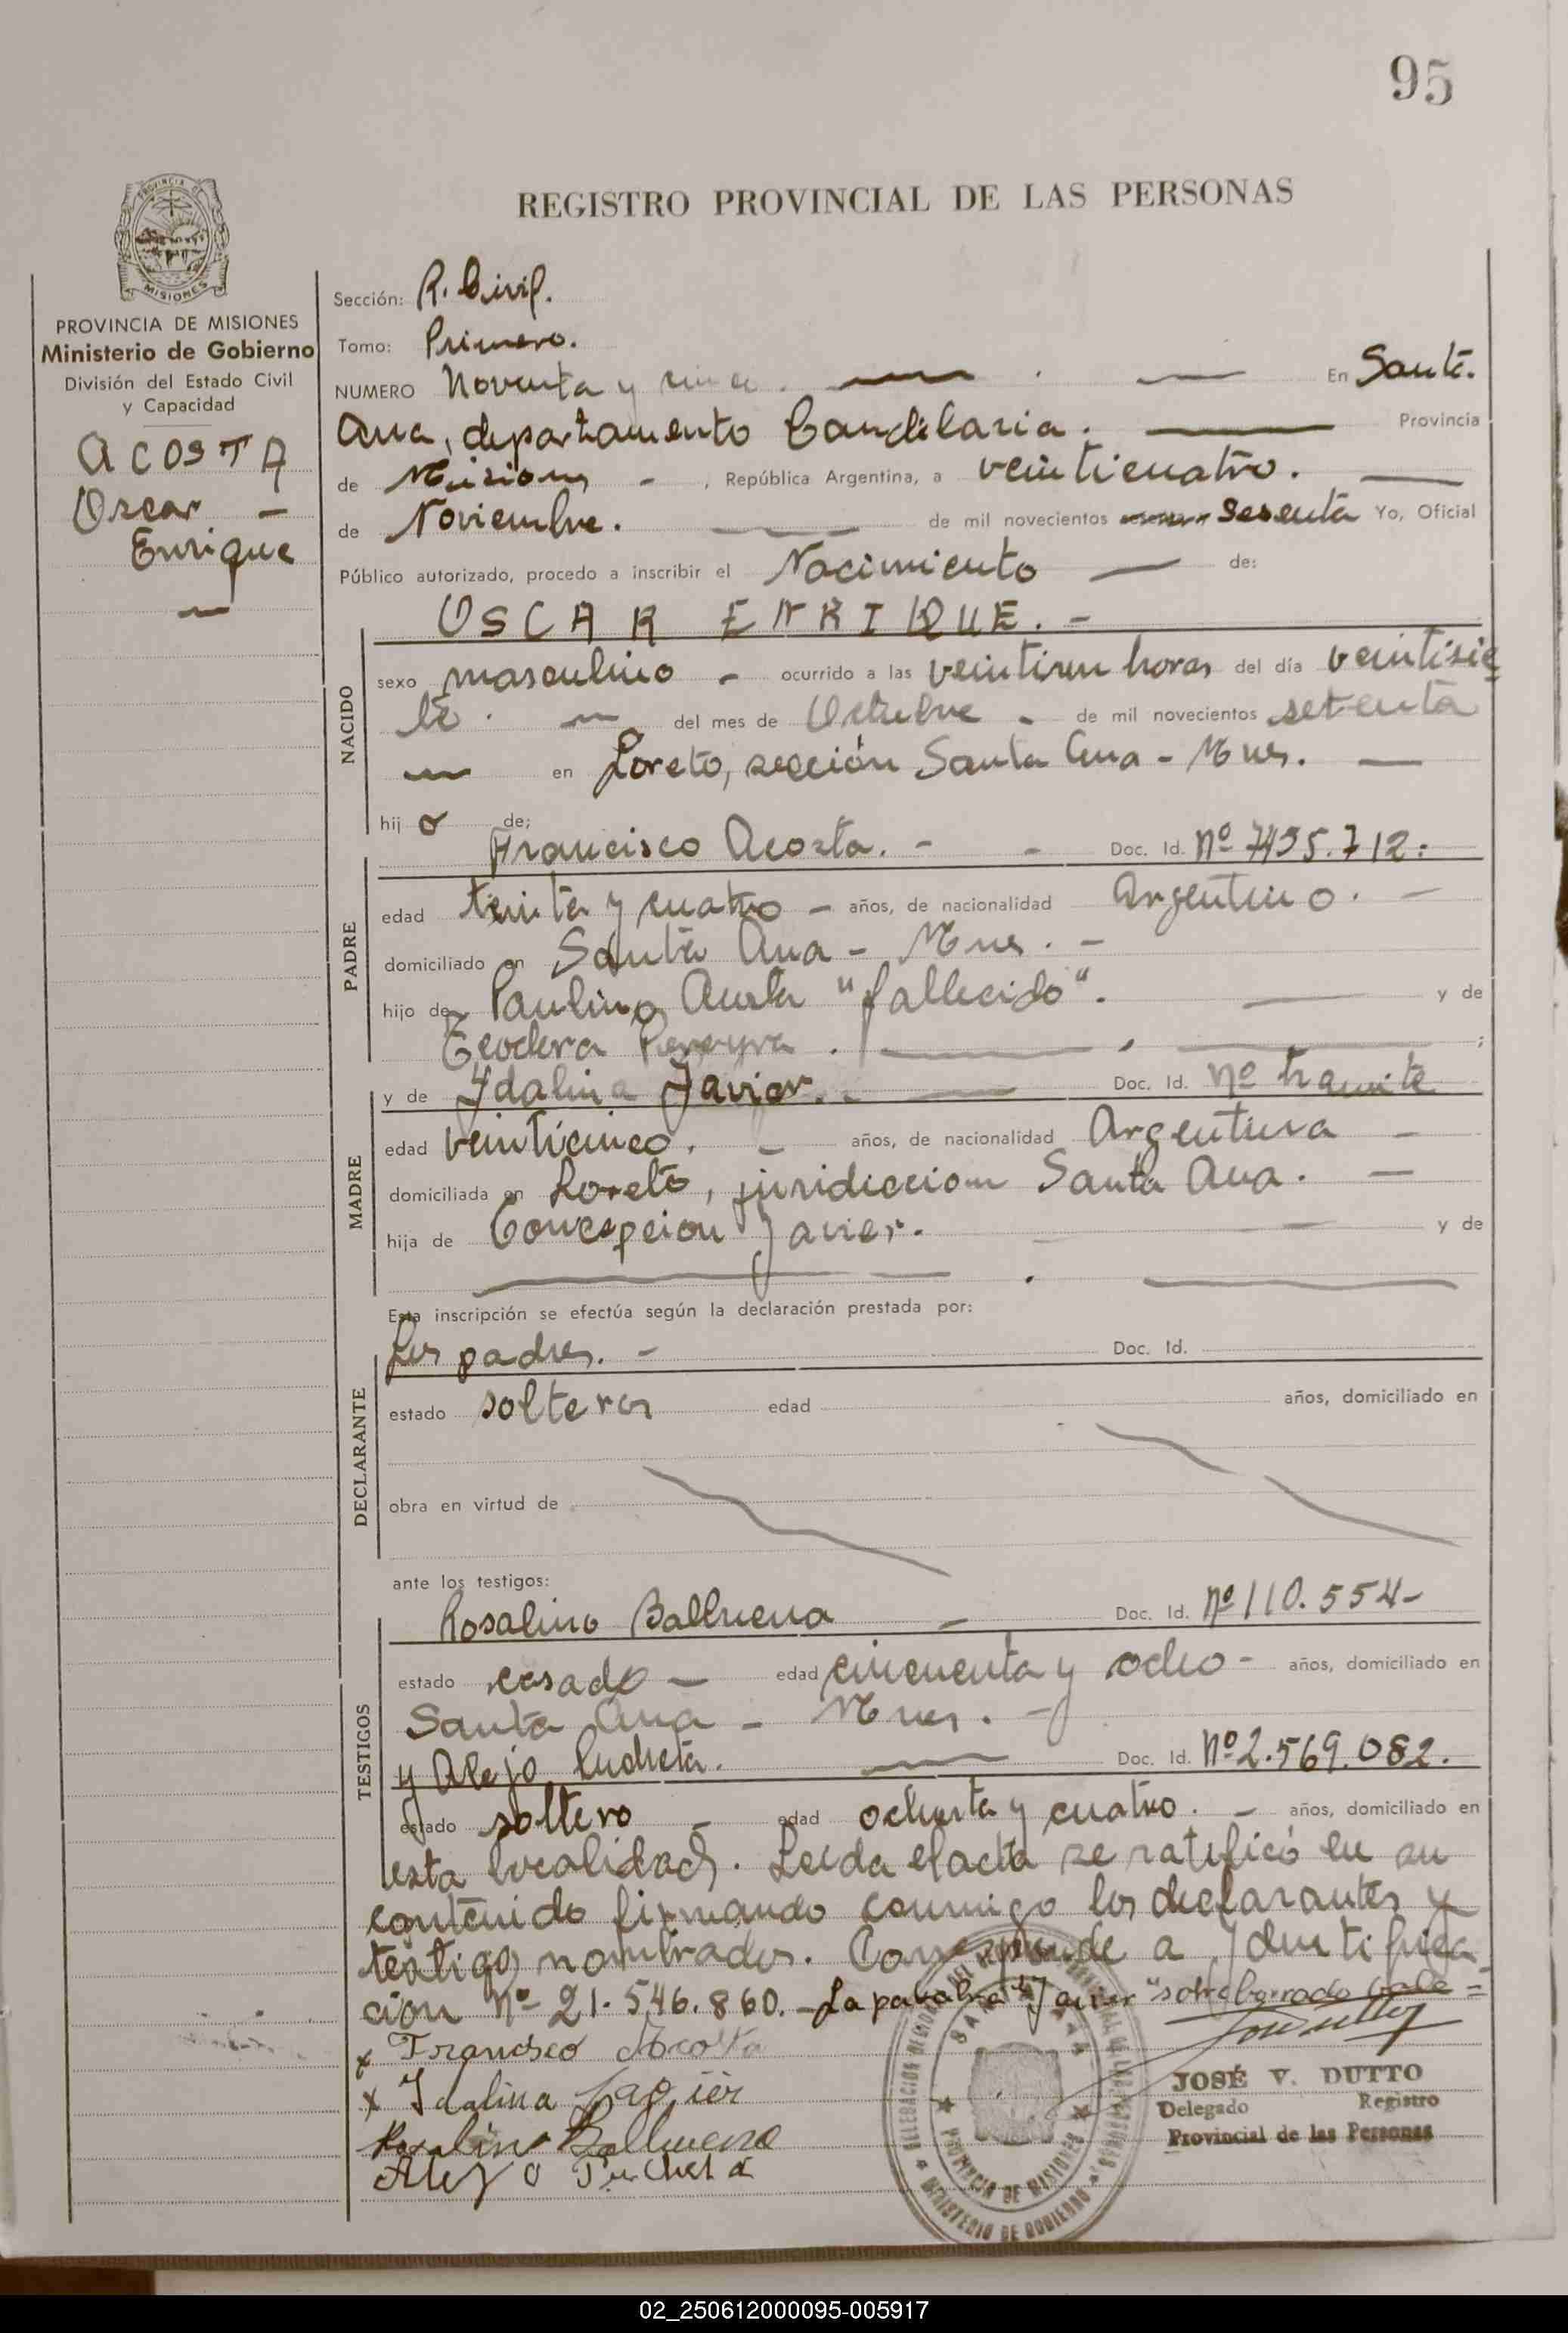 95
REGISTRO PROVINCIAL DE LAS PERSONAS
PROVINCIA DE MISIONES
Ministerio de Gobierno
División del Estado Civil
y Capacidad
ACOSTA
Oscar -
Enrique
Sección: R. Civil.
Tomo: Primero.
NUMERO Noventa y cinco. En Santa
Ana, departamento Candelaria. Provincia
de Misiones - , República Argentina, a veinticuatro.
de Noviembre. de mil novecientos sesenta Yo, Oficial
Público autorizado, procedo a inscribir el Nacimiento de:
OSCAR ENRIQUE. -
NACIDO
sexo masculino - ocurrido a las veintiun horas del día veintisie
te. del mes de Octubre - de mil novecientos setenta
en Loreto, sección Santa Ana - Mnes.
hijo de:
Francisco Acosta. - - Doc. Id. Nº 7435.712.
PADRE
edad treinta y cuatro - años, de nacionalidad Argentino. -
domiciliado en Santa Ana - Mnes. -
hijo de Paulino Acosta "fallecido". y de
Teodora Pereyra. ;
y de Ydalina Javier. - Doc. Id. Nº tramite
MADRE
edad veinticinco. - años, de nacionalidad Argentina -
domiciliada en Loreto, juridiccion Santa Ana. -
hija de Concepcion Javier. y de
Esta inscripción se efectúa según la declaración prestada por:
Los padres. - Doc. Id.
DECLARANTE
estado solteros edad años, domiciliado en
obra en virtud de
ante los testigos:
Rosalino Balbuena - Doc. Id. Nº 110.554-
TESTIGOS
estado casado - edad cincuenta y ocho - años, domiciliado en
Santa Ana - Mnes. -
y Alejo Pucheta. Doc. Id. Nº 2.569.082.
estado soltero - edad ochenta y cuatro. - años, domiciliado en
esta localidad. Leida el acta se ratificó en su
contenido firmando conmigo los declarantes y
testigos nombrados. Corresponde a Identifica
ción Nº 21.546.860. - La palabra "Javier" sobreborrado vale =
x Francisco Acosta
x Idalina Javier
Rosalino Balbuena
Alejo Pucheta
SANTA ANA
PROVINCIA DE MISIONES
MINISTERIO DE GOBIERNO
JOSÉ V. DUTTO
Delegado Registro
Provincial de las Personas
02_250612000095-005917